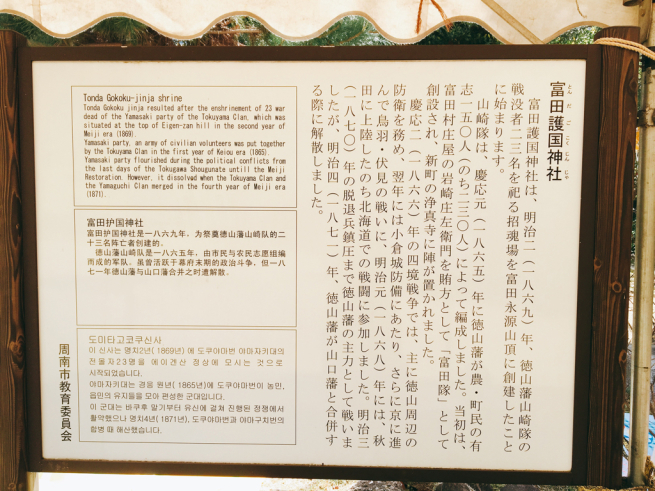 富田護国神社
とんだごこくじんじゃ
富田護国神社は、明治二（一八六九）年、徳山藩山崎隊の
戦没者二三名を祀る招魂場を富田永源山頂に創建したこと
に始まります。
山崎隊は、慶応元（一八六五）年に徳山藩が農・町民の有
志一五〇人（のち二三〇人）によって編成しました。当初は、
富田村庄屋の岩崎庄左衛門を賄方として「富田隊」として
創設され、新町の浄真寺に陣が置かれました。
慶応二（一八六六）年の四境戦争では、主に徳山周辺の
防衛を務め、翌年には小倉城防備にあたり、さらに京に進
んで鳥羽・伏見の戦いに、明治元（一八六八）年には、秋
田に上陸したのち北海道での戦闘に参加しました。明治三
（一八七〇）年の脱退兵鎮圧まで徳山藩の主力として戦いま
したが、明治四（一八七一）年、徳山藩が山口藩と合併す
る際に解散しました。
Tonda Gokoku-jinja shrine
Tonda Gokoku jinja resulted after the enshrinement of 23 war
dead of the Yamasaki party of the Tokuyama Clan, which was
situated at the top of Eigen-zan hill in the second year of
Meiji era (1869)
Yamasaki party, an army of civilian volunteers was put together
by the Tokuyama Clan in the first year of Keiou era (1865).
Yamasaki party flourished during the political conflicts from
the last days of the Tokugawa Shougunate untill the Meiji
Restoration. However, it dissolved when the Tokuyama Clan and
the Yamaguchi Clan merged in the fourth year of Meiji era
(1871).
富田护国神社
富田护国神社是一八六九年，为祭奠德山藩山崎队的二
十三名阵亡者创建的。
德山藩山崎队是一八六五年，由市民与农民志愿组编
而成的军队，虽曾活跃于幕府末期的政治斗争，但一八
七一年德山藩与山口藩合并之时遭解散。
도미타고코쿠신사
이 신사는 명치2년( 1869년) 에 도쿠야마번 야마자키대의
전몰자23명을 에이겐산 정상에 모시는 것으로
시작되었습니다.
야마자키대는 경응 원년( 1865년)에 도쿠야마번이 농민,
읍민의 유지들을 모아 편성한 군대입니다.
이 군대는 바쿠후 말기부터 유신에 걸쳐 진행된 정쟁에서
활약했으나 명치4년( 1871년), 도쿠야마번과 야마구치번의
합병 때 해산했습니다.
周南市教育委員会